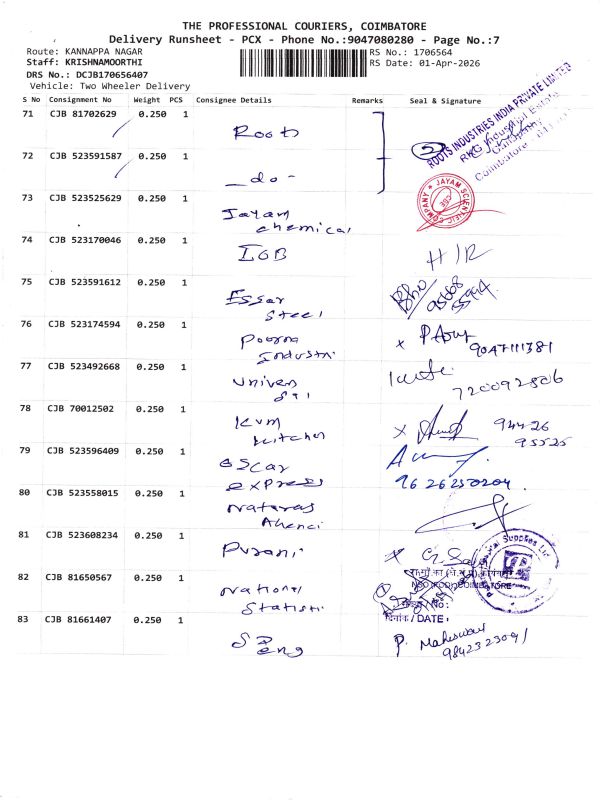 THE PROFESSIONAL COURIERS, COIMBATORE
Delivery Runsheet - PCX - Phone No.:9047080280 - Page No.:7
Route: KANNAPPA NAGAR
RS No.: 1706564
Staff: KRISHNAMOORTHI
RS Date: 01-Apr-2026
DRS No.: DCJB170656407
Vehicle: Two Wheeler Delivery
S No Consignment No Weight PCS Consignee Details Remarks Seal & Signature
71 CJB 81702629 0.250 1 Roots
ROOTS INDUSTRIES INDIA PRIVATE LIMITED
RKG Industrial Estate
Ganapathy
Coimbatore
2
72 CJB 523591587 0.250 1 - do -
73 CJB 523525629 0.250 1 Jayam
chemical
JAYAM SCIENTIFIC COMPANY
74 CJB 523170046 0.250 1 IGB
75 CJB 523591612 0.250 1 Essar
Steel
95668
55994
76 CJB 523174594 0.250 1 Poorna
Industri
9047111381
77 CJB 523492668 0.250 1 Univer
720092806
78 CJB 70012502 0.250 1 KVM
kitchen
94426
95525
79 CJB 523596409 0.250 1 Oscar
express
9626250204
80 CJB 523558015 0.250 1 Nataras
Ahenci
81 CJB 523608234 0.250 1 Purani
Supplies
82 CJB 81650567 0.250 1 National
Statisti
COIMBATORE
No:
दिनांक / DATE:
83 CJB 81661407 0.250 1 S P
eng
P. Maheswari
9842323091